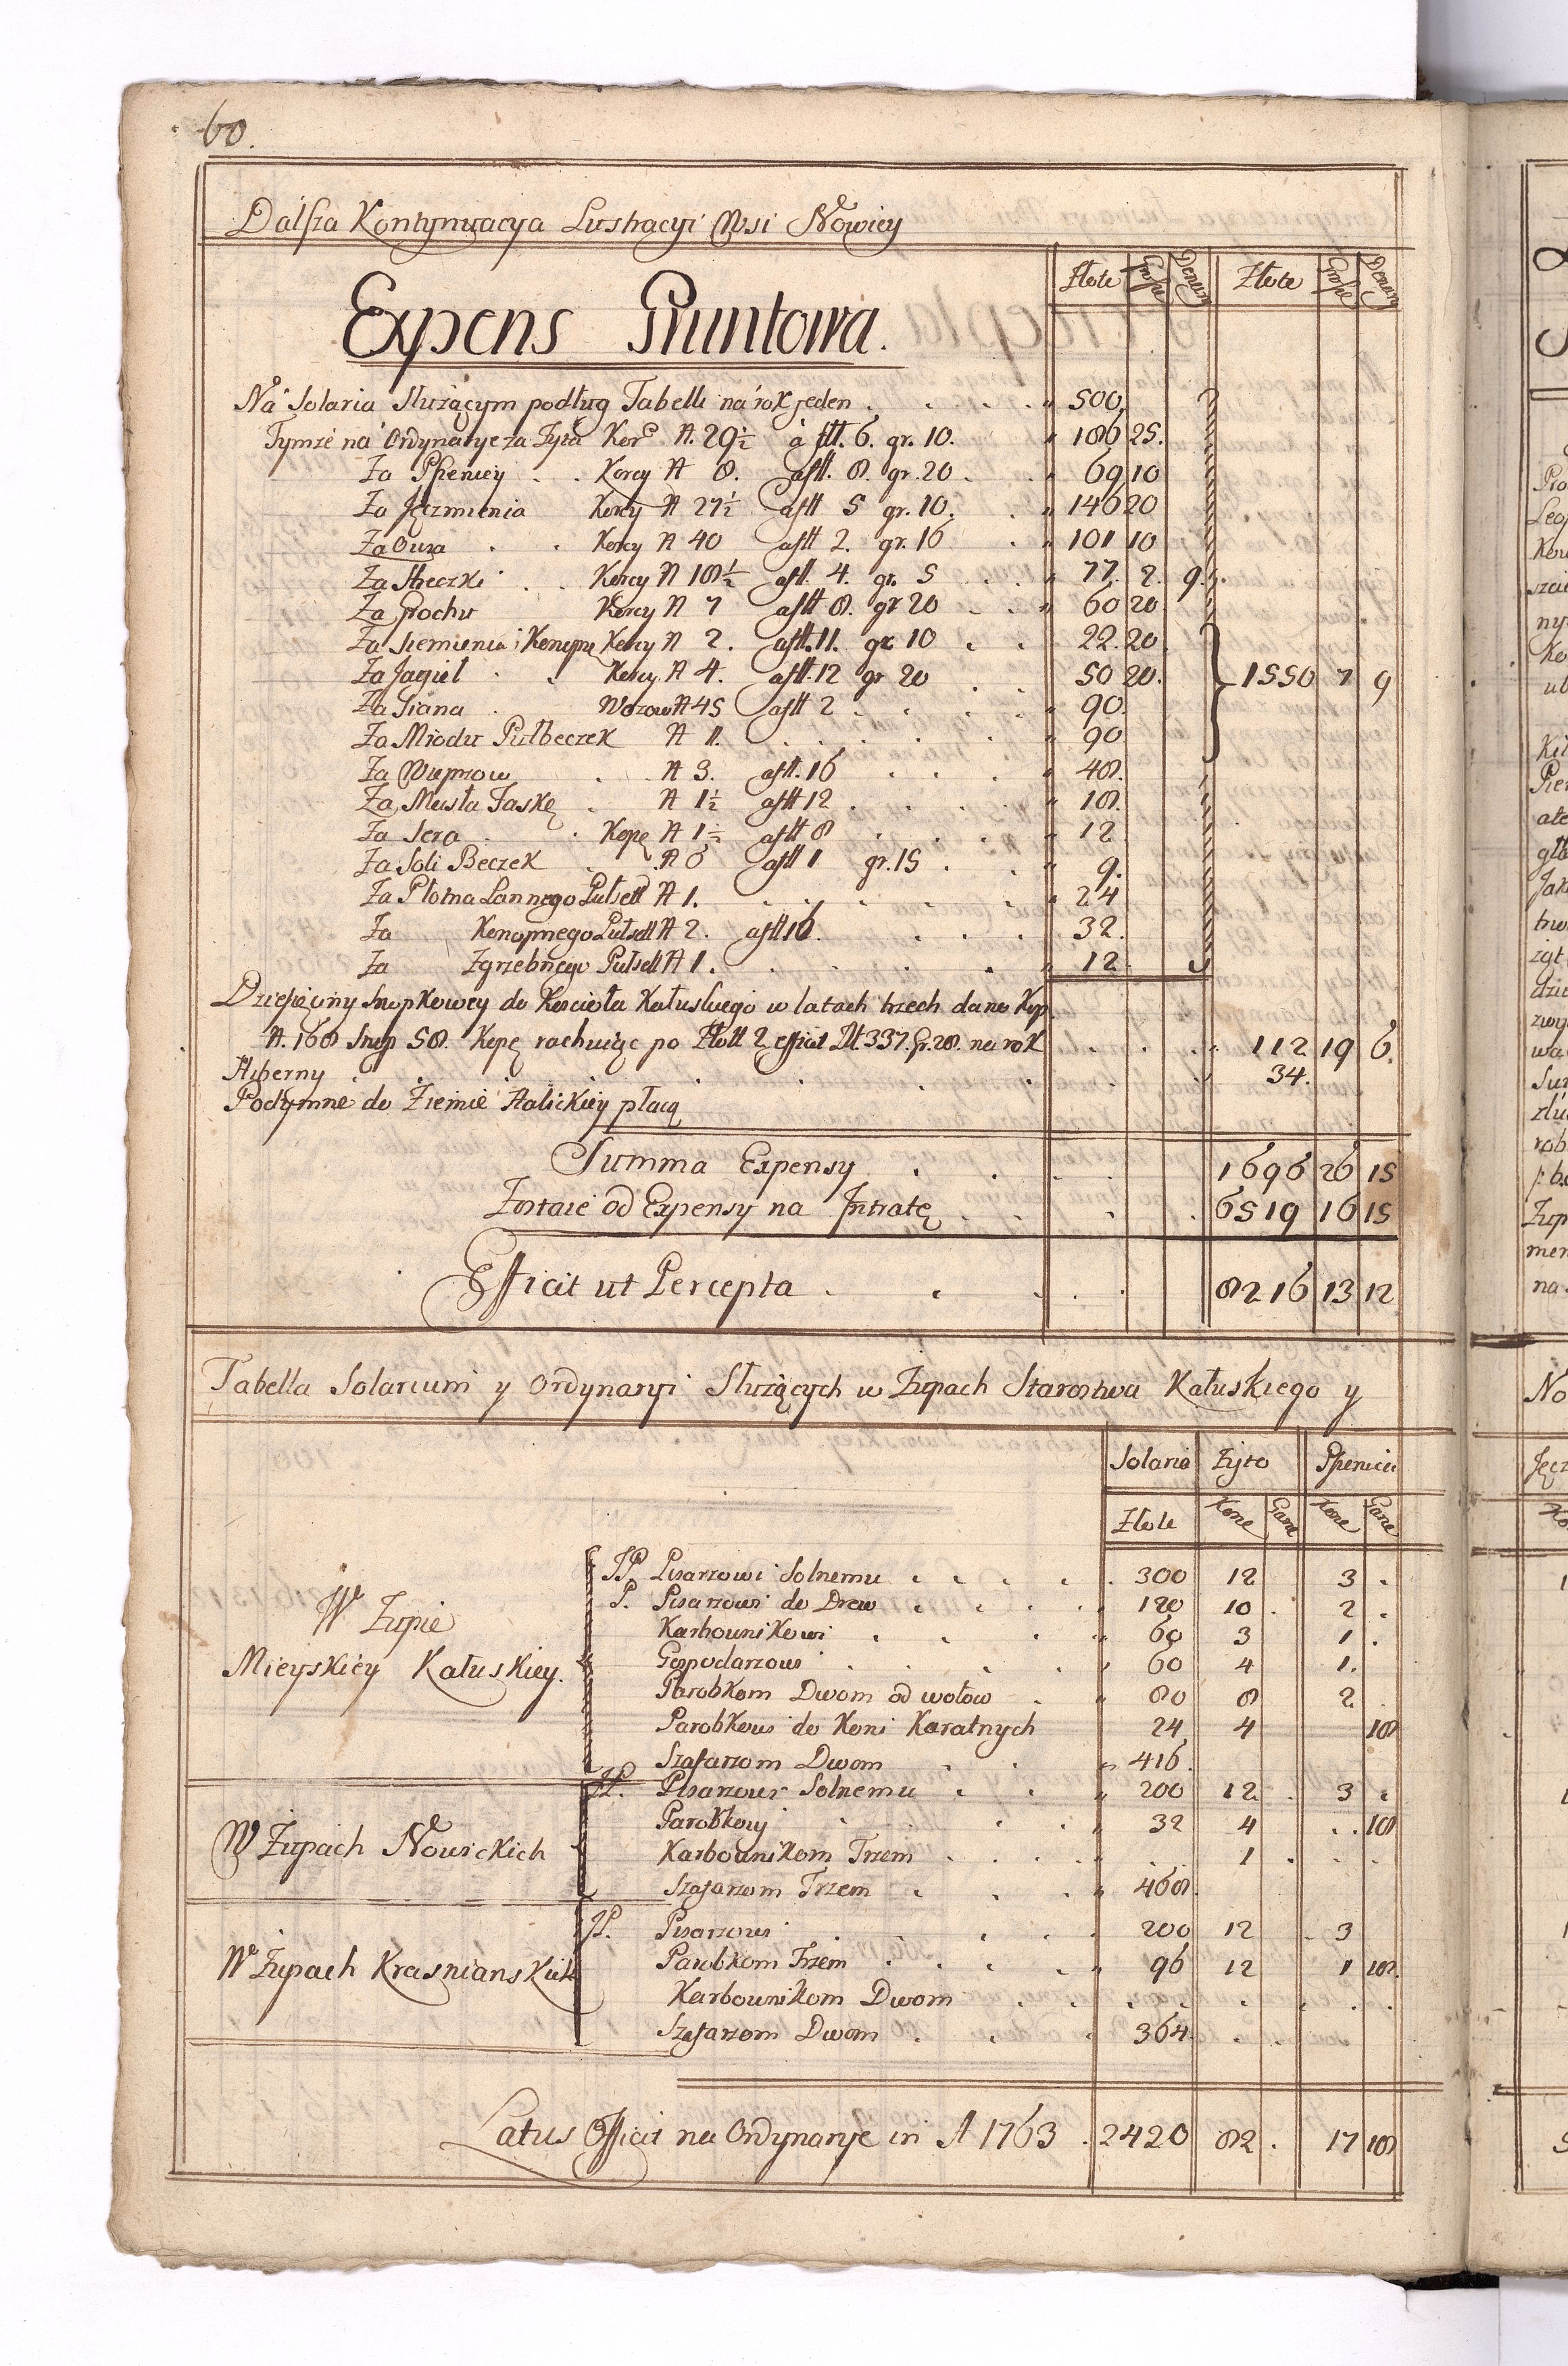 60.
Dalsza Kontynuacya Lustracyi Wsi Nowicy
Złote Grosze Denary Złote Grosze Denary
Expens Gruntowa.
Na Solaria Służącym podług Tabelli na rok jeden . . . . 500
Tymże na Ordynarye za Zyta Korcy N. 29½ a flł. 6. gr. 10. 186 25.
Za Pszenicy . . Korcy N 8. a flł. 8. gr. 20 . . 69 10
Za Jęczmienia Korcy N 27½ a flł 5 gr. 10. . 146 20
Za Owsa . . Korcy N 40 a flł 2. gr. 16 . 101 10
Za Hreczki . . Korcy N 18½ a flł. 4. gr. 5 . . 77. 2. 9.
Za Grochu Korcy N 7 a flł 8. gr 20 . . 60 20
Za Siemienia i Konopne Korcy N 2. a flł. 11. gr 10 . . 22. 20
Za Jagieł . . Korcy N 4. a flł. 12 gr 20 . . 50 20. 1550 7 9
Za Siana . Wozow N 45 a flł 2 . . . . 90.
Za Miodu Pułbeczek N 11. . . . . . 90
Za Wieprzow . . N 3. a flł. 16 . . . 48.
Za Masła Faskę . N 1½ a flł 12 . . . . 18.
Za Sera . . Kopę N 1½ a flł 8 . . . . 12
Za Soli Beczek . N 6 a flł 1 gr. 15 . . 9.
Za Płotna Lannego Pułsetł N 1. . . . . . 24
Za Konopnego Pułsetł N 2. a flł 16. . . . 32.
Za Zgrzebnego Pułsetł N 1. . . . . 12
Dziesięciny Snopkowey do Koscioła Kałuskiego w latach trzech dano Kop
N. 168 Snop 58. Kopę rachuiąc po Złott 2 efficit Zł. 337. Gr. 28. na rok . . . . 112 19 6.
Hyberny . . . . . . 34.
Podymne do Ziemie Halickiey płacą
Summa Expensy . . . . 1696 26 15
Zostaie od Expensy na Intratę . . . . 6519 16 15
Efficit ut Percepta . . . . . 8216 13 12
Tabella Solarium y Ordynaryi Służących w Zupach Starostwa Kałuskiego y
Solaria Zyto Pszenica
Złote Korce Garce Korce Garce
W Zupie
Mieyskiey Kałuskiey.
JP. Pisarzowi Solnemu . . . . . 300 12 3 .
P. Pisarzowi do Drew . . . . 120 10 . 2 .
Karbownikowi . . . . 60 3 1 .
Gospodarzowi . . . . 60 4 1.
Parobkom Dwom od wołow . 80 8 2 .
Parobkowi do Koni Karatnych 24 4 18
Szafarzom Dwom . . 416.
W Zupach Nowickich
JP. Pisarzowi Solnemu . . 200 12 . 3 .
Parobkowi . . . . 32 4 . . 18
Karbownikom Trzem . . . . . 1 . . .
Szafarzom Trzem . . . 468.
W Zupach Krasnianskich
JP. Pisarzowi . . . . 200 12 . 3
Parobkom Trzem . . . . 96 12 1 18.
Karbownikom Dwom . . . . . . . .
Szafarzom Dwom . . . 364. . .
Latus Efficit na Ordynarye in A 1763 . 2420 82 . 17 18